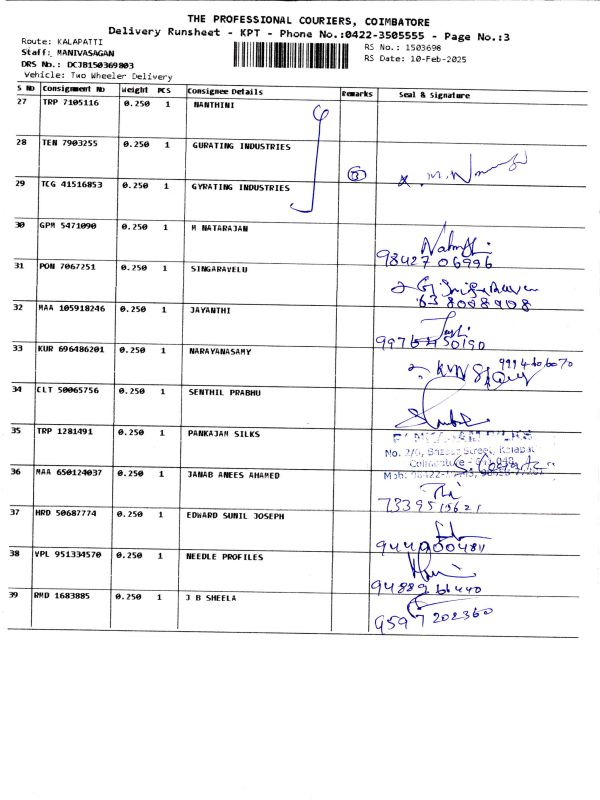 THE PROFESSIONAL COURIERS, COIMBATORE
Delivery Runsheet - KPT - Phone No.:0422-3505555 - Page No.:3
Route: KALAPATTI
Staff: MANIVASAGAN
DRS No.: DCJB150369803
Vehicle: Two Wheeler Delivery
RS No.: 1503698
RS Date: 10-Feb-2025
S No Consignment No Weight PCS Consignee Details Remarks Seal & Signature
27 TRP 7105116 0.250 1 NANTHINI
28 TEN 7903255 0.250 1 GURATING INDUSTRIES
29 TCG 41516853 0.250 1 GYRATING INDUSTRIES
30 GPM 5471090 0.250 1 M NATARAJAN
98427 06996
31 PON 7067251 0.250 1 SINGARAVELU
32 MAA 105918246 0.250 1 JAYANTHI
33 KUR 696486201 0.250 1 NARAYANASAMY
34 CLT 50065756 0.250 1 SENTHIL PRABHU
35 TRP 1281491 0.250 1 PANKAJAM SILKS
No. 2/6, Street, Kalapat
36 MAA 650124037 0.250 1 JANAB ANEES AHAMED
7339515621
37 HRD 50687774 0.250 1 EDWARD SUNIL JOSEPH
38 VPL 951334570 0.250 1 NEEDLE PROFILES
39 RMD 1683885 0.250 1 J B SHEELA
9597202360